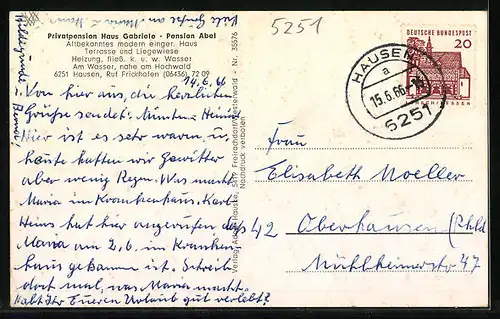 Viele Grüße an Maria
5251
Privatpension Haus Gabriele - Pension Abel
Altbekanntes modern einger. Haus
Terrasse und Liegewiese
Heizung, fließ. k. u. w. Wasser
Am Wasser, nahe am Hochwald
6251 Hausen, Ruf Frickhofen (06436) 72 09
14.6.66
Von hier aus, die herzlichen
Grüße sendet,
Hier ist es sehr warm u.
heute hatten wir Gewitter
aber wenig Regen. Was macht
Maria im Krankenhaus, Karl-
Heinz hat hier angerufen das
Maria am 2.6. im Kranken-
haus gekommen ist. Schreib
dort mal, was Maria macht.
Habt Ihr Eueren Urlaub gut verlebt?
Nachdruck verboten
Nr. 35576
DEUTSCHE BUNDESPOST
20
HAUSEN
a
15.6.66
6251
Frau
Elisabeth Moeller
42 Oberhausen (Rhld
Mühlheimerstr. 47